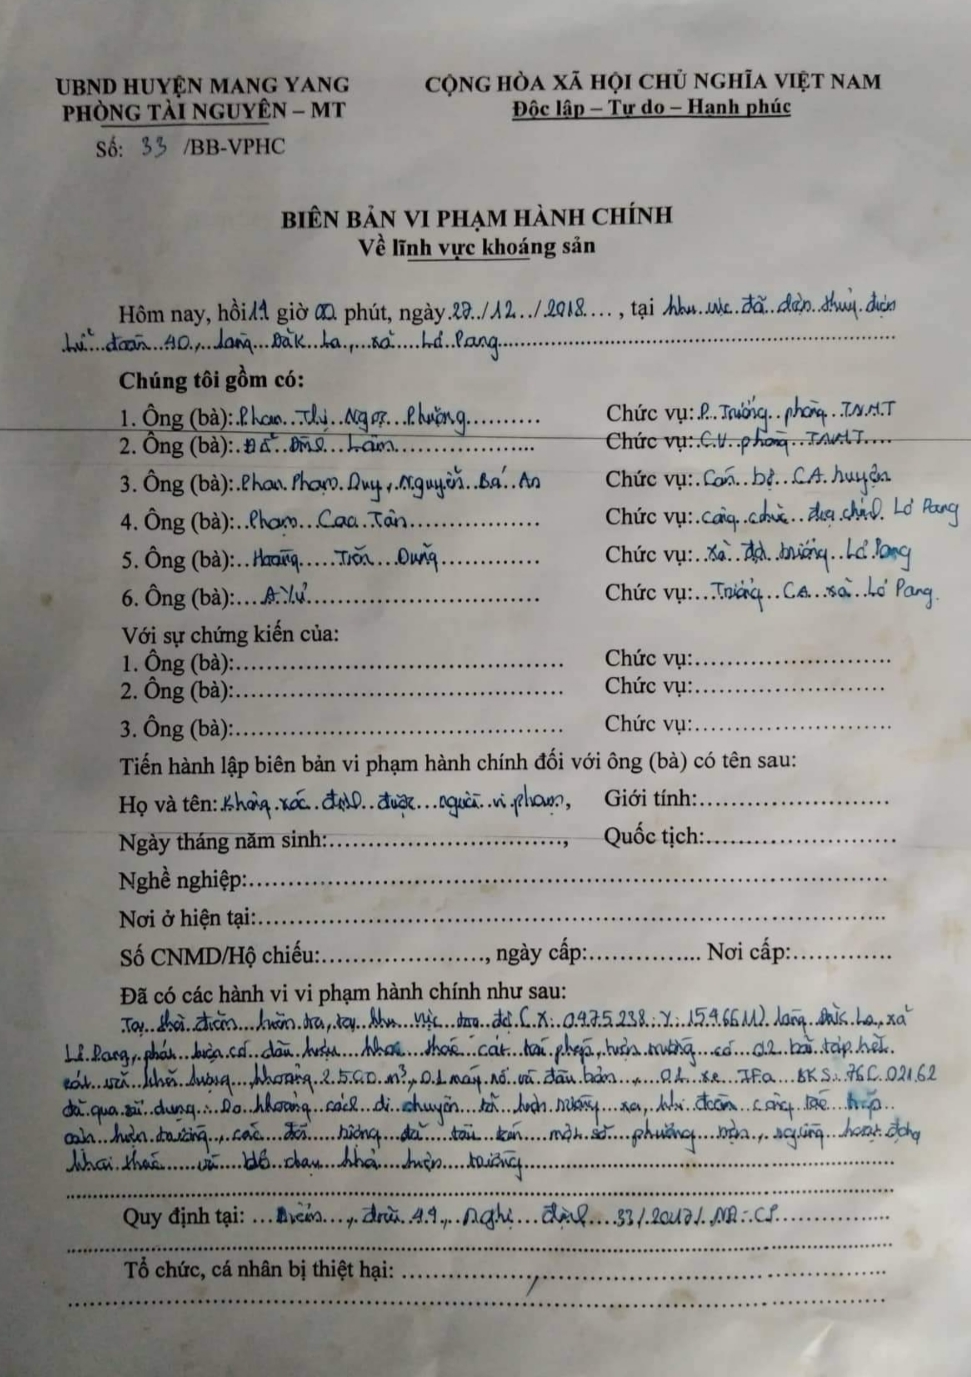 UBND HUYỆN MANG YANG
PHÒNG TÀI NGUYÊN – MT
Số: 33 /BB-VPHC
CỘNG HÒA XÃ HỘI CHỦ NGHĨA VIỆT NAM
Độc lập – Tự do – Hạnh phúc
BIÊN BẢN VI PHẠM HÀNH CHÍNH
Về lĩnh vực khoáng sản
Hôm nay, hồi 11 giờ 00 phút, ngày 27/12/2018, tại khu vực thủy điện
làng Đăk La, xã Lơ Pang
Chúng tôi gồm có:
1. Ông (bà): Phan Thị Ngọc Phượng Chức vụ: P. Trưởng phòng TNMT
2. Ông (bà): Lâm Chức vụ: C.V phòng TNMT
3. Ông (bà): Phan Phạm Duy, Nguyễn Bá An Chức vụ: Cán bộ CA huyện
4. Ông (bà): Phạm Cao Tân Chức vụ: Công chức địa chính Lơ Pang
5. Ông (bà): Hoàng Dũng Chức vụ: Xã đội trưởng Lơ Pang
6. Ông (bà): A Yư Chức vụ: Trưởng CA xã Lơ Pang
Với sự chứng kiến của:
1. Ông (bà): Chức vụ:
2. Ông (bà): Chức vụ:
3. Ông (bà): Chức vụ:
Tiến hành lập biên bản vi phạm hành chính đối với ông (bà) có tên sau:
Họ và tên: Không xác định được người vi phạm, Giới tính:
Ngày tháng năm sinh:, Quốc tịch:
Nghề nghiệp:
Nơi ở hiện tại:
Số CNMD/Hộ chiếu:, ngày cấp: Nơi cấp:
Đã có các hành vi vi phạm hành chính như sau:
Tại thời điểm kiểm tra, tại khu vực tọa độ (X: 0475238; Y: 1546611) làng Đăk La, xã
Lơ Pang, phát hiện có dấu hiệu khai thác cát trái phép, hiện trường có 02 bãi tập kết
cát với khối lượng khoảng 2.500 m³, 01 máy nổ và đầu bơm, 01 xe IFa BKS: 76C.02162
đã qua sử dụng. Do khoảng cách di chuyển tới hiện trường xa, khi đoàn công tác tiếp
cận hiện trường, các đối tượng đã tẩu tán một số phương tiện, ngừng hoạt động
khai thác và bỏ chạy khỏi hiện trường
Quy định tại: Điểm, điều 44, Nghị định 33/2017/NĐ-CP
Tổ chức, cá nhân bị thiệt hại: /